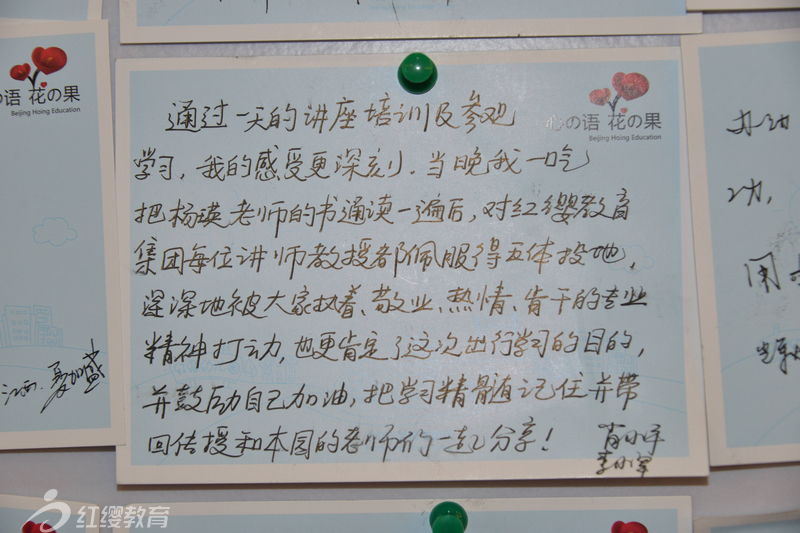 の语 花の果
Beijing Hoing Education
江西.夏加盛
心の语 花の果
Beijing Hoing Education
通过一天的讲座培训及参观
学习，我的感受更深刻.当晚我一吃
把杨瑛老师的书通读一遍后，对红缨教育
集团每位讲师教授都佩服得五体投地，
深深地被大家执着、敬业、热情、肯干的专业
精神打动，也更肯定了这次出行学习的目的，
并鼓励自己加油，把学习精髓记住并带
回传授和本园的老师们一起分享！
肖小平
李小军
功，
红缨教育